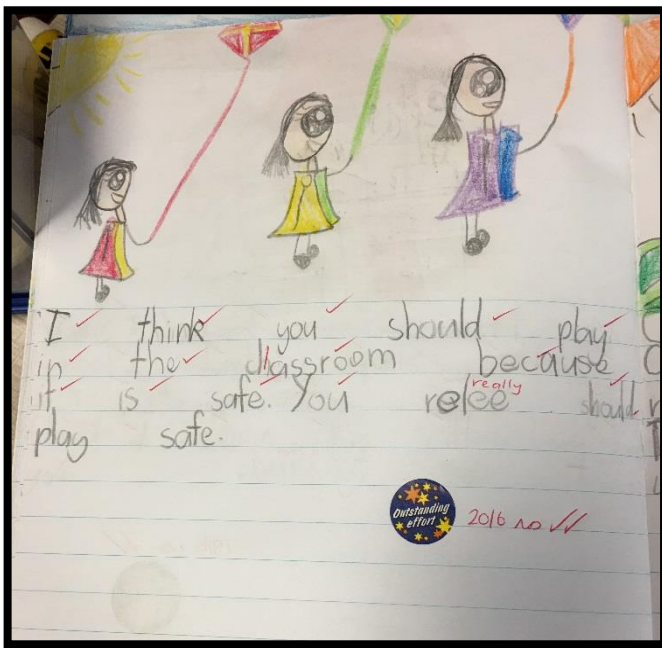 I think you should play
in the classroom because
it is safe. You relee should
really
play safe.
Outstanding
effort
2016 no